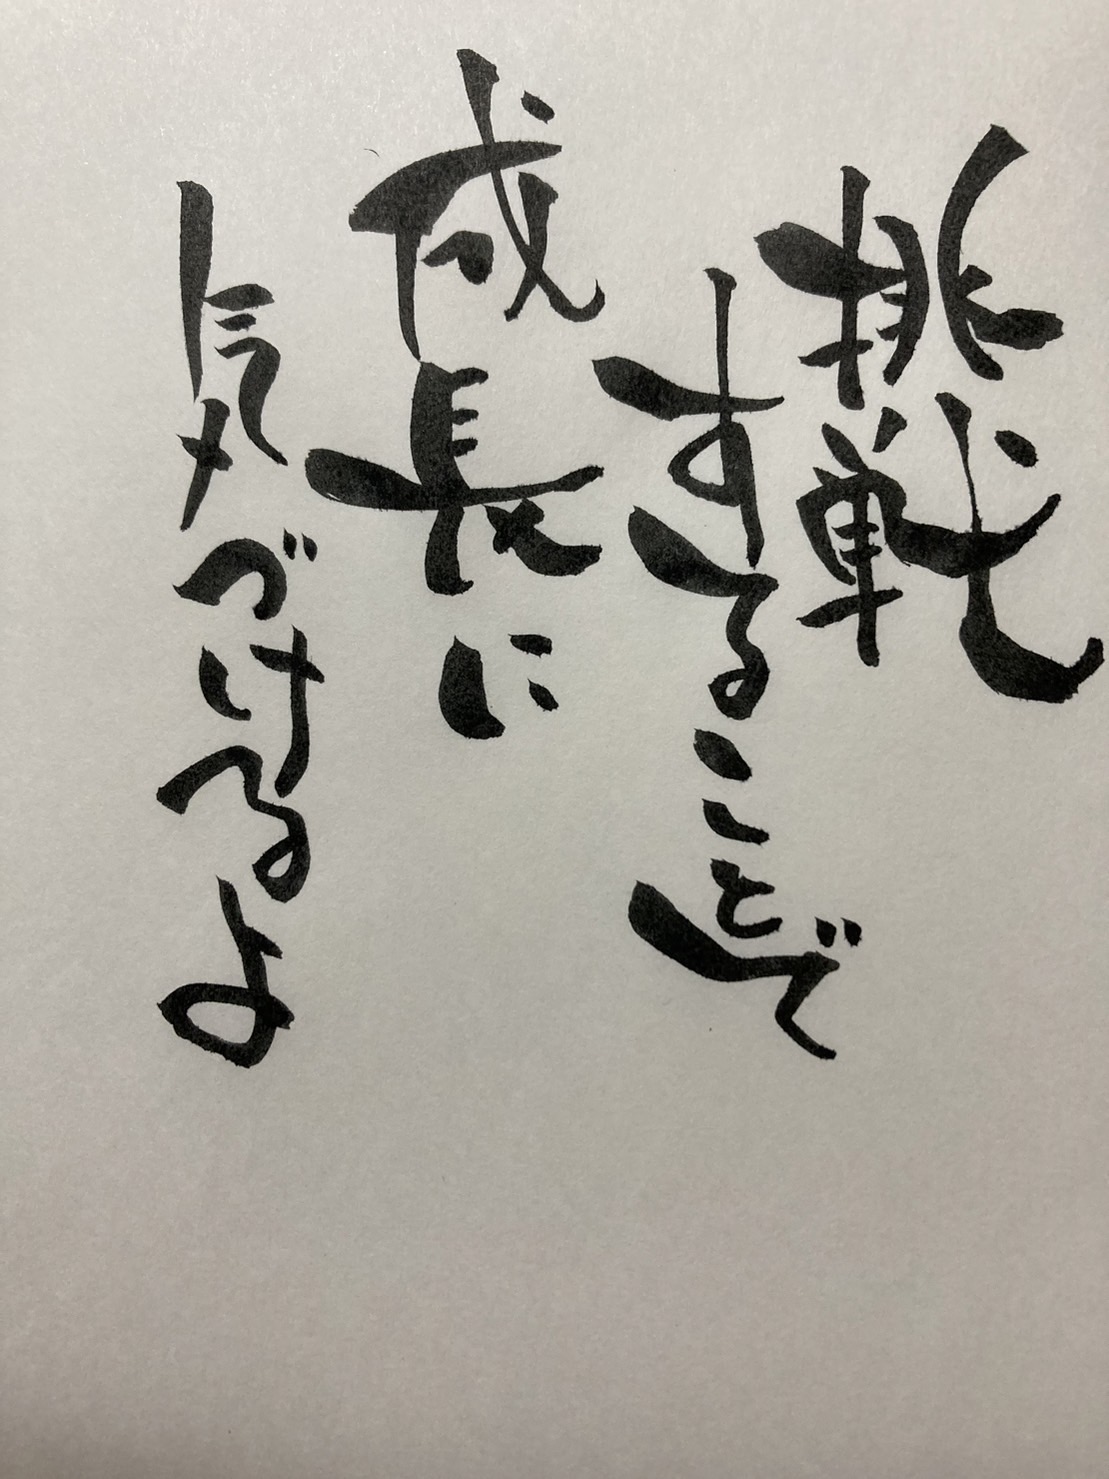 挑戦
することで
成長に
気づけるよ